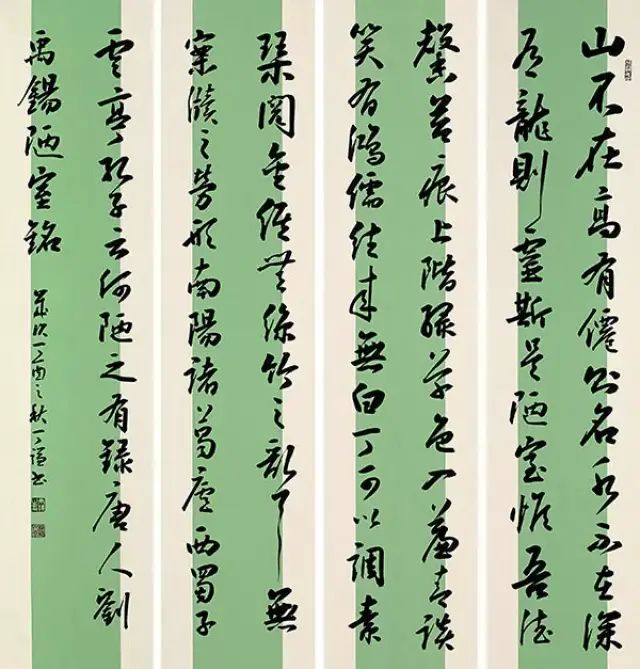 山不在高有僊則名水不在深
有龍則靈斯是陋室惟吾德
馨苔痕上階綠草色入簾青談
笑有鴻儒往來無白丁可以調素
琴閱金經無絲竹之亂耳無
案牘之勞形南陽諸葛廬西蜀子
雲亭孔子云何陋之有録唐人劉
禹錫陋室銘
歲次丁酉之秋丁謙書